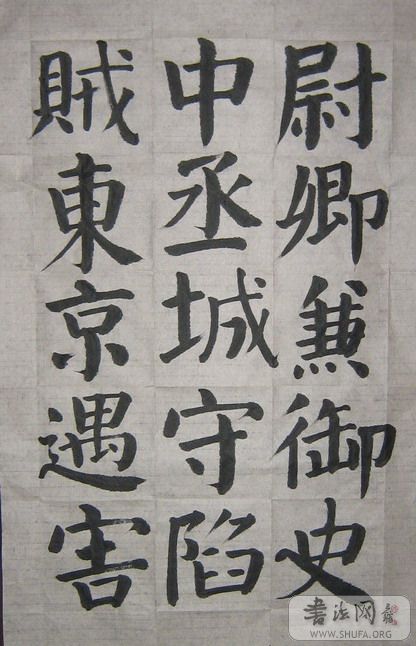 尉卿兼御史
中丞城守陷
賊東京遇害
書法网
WWW.SHUFA.ORG